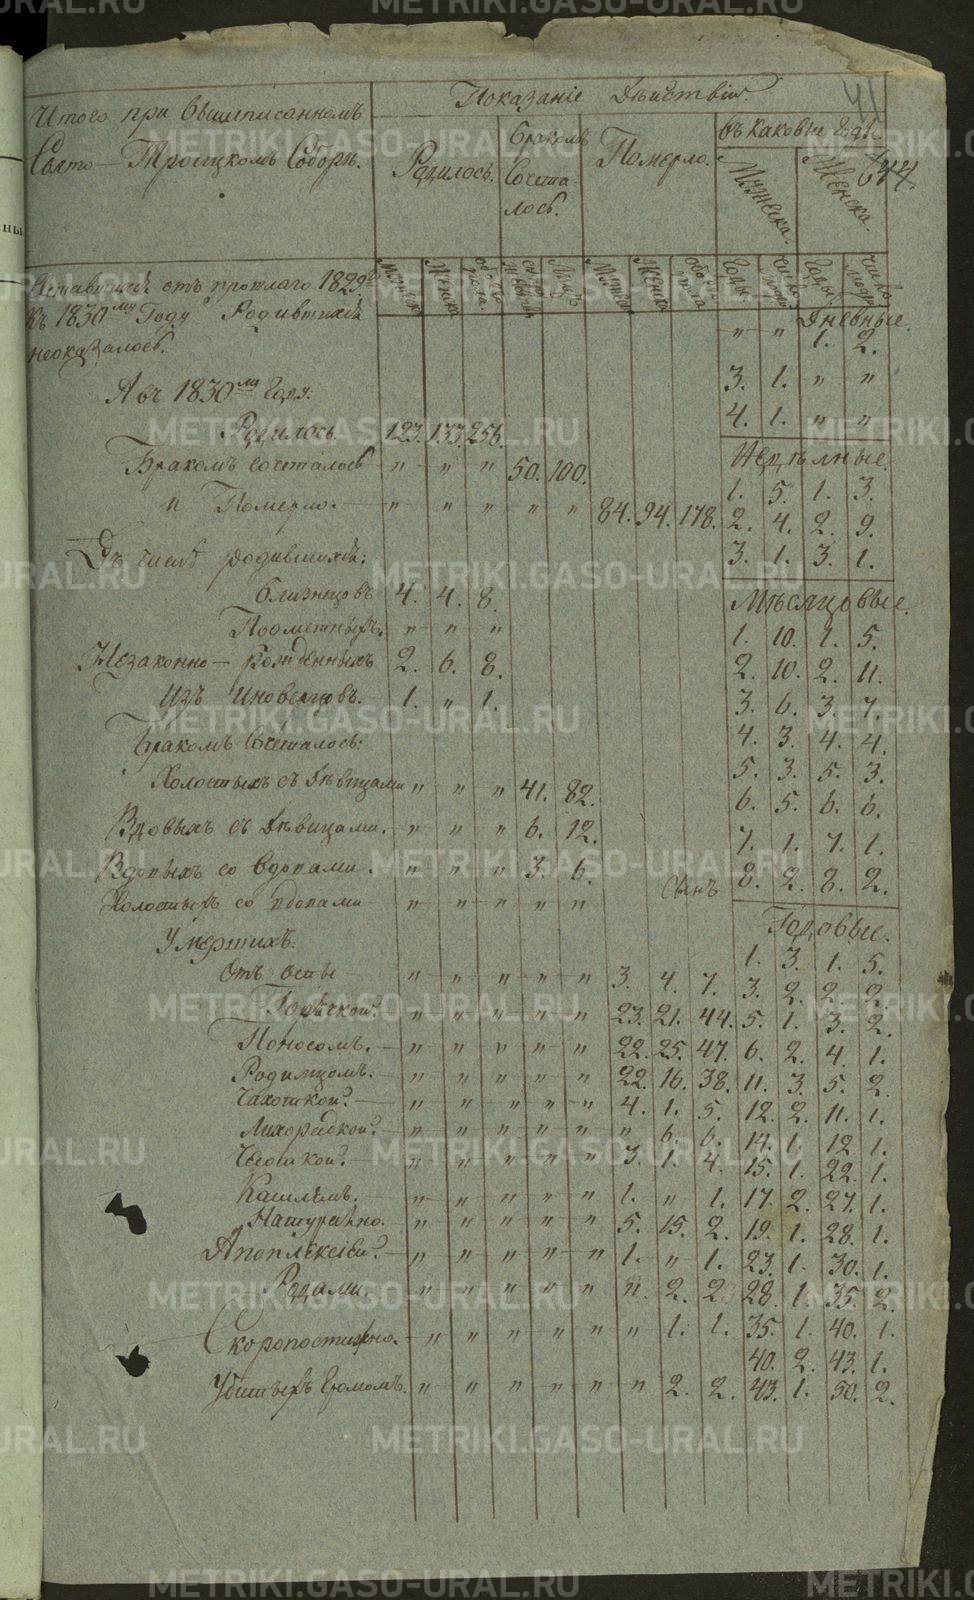 METRIKI.GASO-URAL.RU
Показаніе Дѣйствій.
41
644
Итого при Вышеписанномъ
Свято-Троицкомъ Соборѣ.
Родилось. Бракомъ Сочеталось. Померло. Въ каковые Годы
Мужеска. Женска.
Оставшихся отъ прошлаго 1829го
къ 1830му Году Родившихся
неоказалось.
Мужеска Женска обоего пола Мужеска Женска обоего пола Годы Число Годы Число
Дневные.
„ „ 1. 2.
3. 1. „ „
А въ 1830мъ Годѣ:
4. 1. „ „
Родилось. 123. 133. 256.
Недѣлные.
Бракомъ сочеталось „ „ „ 50. 100.
1. 5. 1. 3.
и Померло. „ „ „ „ „ 84. 94. 178. 2. 4. 2. 9.
3. 1. 3. 1.
Въ числѣ родившихся:
Мѣсяцовые.
близнецовъ 4. 4. 8.
1. 10. 1. 5.
Подметныхъ. „ „ „
Незаконно-рожденныхъ 2. 6. 8.
2. 10. 2. 11.
Изъ Иноверцовъ. 1. „ 1.
3. 6. 3. 7.
Бракомъ Сочеталось:
4. 3. 4. 4.
Холостыхъ съ Дѣвицами „ „ „ 41. 82.
5. 3. 5. 3.
6. 5. 6. 6.
Вдовыхъ съ Дѣвицами. „ „ „ 6. 12.
7. 1. 7. 1.
Вдовыхъ со вдовами. „ „ „ 3. 6.
8. 2. 8. 2.
Холостыхъ со вдовами „ „ „ „ „
Годовые.
Умершихъ:
1. 3. 1. 5.
Отъ оспы „ „ „ „ „ 3. 4. 7. 3. 2. 2. 2.
Горячкой. „ „ „ „ „ 23. 21. 44. 5. 1. 3. 2.
Поносомъ. „ „ „ „ „ 22. 25. 47. 6. 2. 4. 1.
Родимцомъ. „ „ „ „ „ 22. 16. 38. 11. 3. 5. 2.
Чахоткой. „ „ „ „ „ 4. 1. 5. 12. 2. 11. 1.
Лихорадкой. „ „ „ „ „ „ 6. 6. 14. 1. 12. 1.
„ „ „ „ „ 3. 1. 4. 15. 1. 22. 1.
Кашлемъ. „ „ „ „ „ 1. „ 1. 17. 2. 27. 1.
Натурально. „ „ „ „ „ 5. 15. 2. 19. 1. 28. 1.
Апоплексіей. „ „ „ „ „ 1. „ 1. 23. 1. 30. 1.
Родами. „ „ „ „ „ „ 2. 2. 28. 1. 35. 2.
Скоропостижно. „ „ „ „ „ „ 1. 1. 35. 1. 40. 1.
40. 2. 43. 1.
Убитыхъ Громомъ. „ „ „ „ „ „ 2. 2. 43. 1. 50. 2.